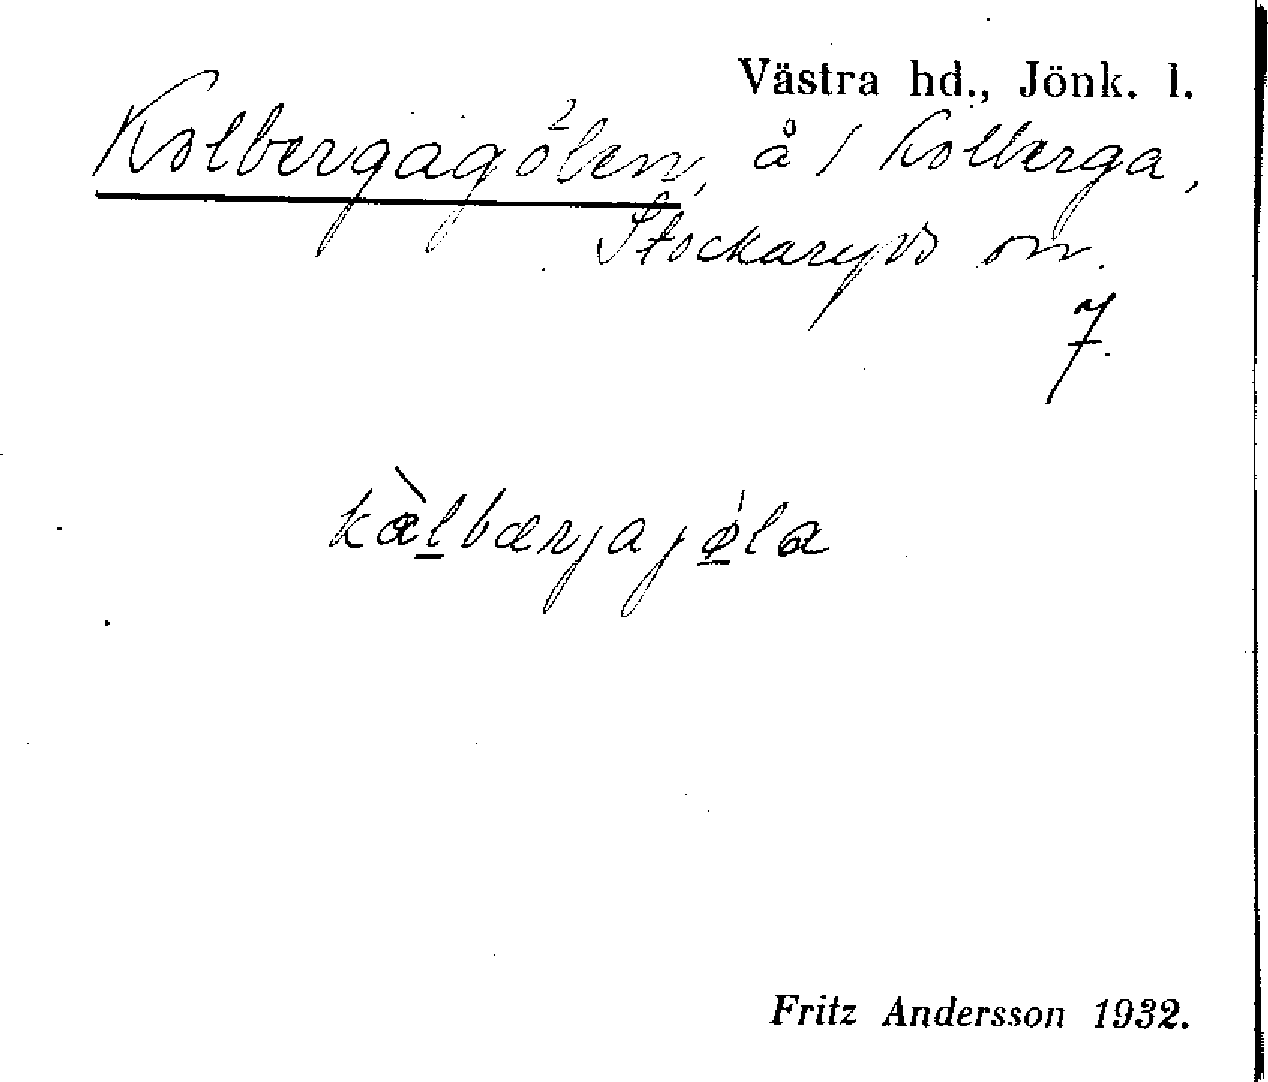 Västra hd., Jönk. l.
Kolbergagölen, å / Kolberga,
Stockaryds sn.
7.
kælbærjajøla
Fritz Andersson 1932.